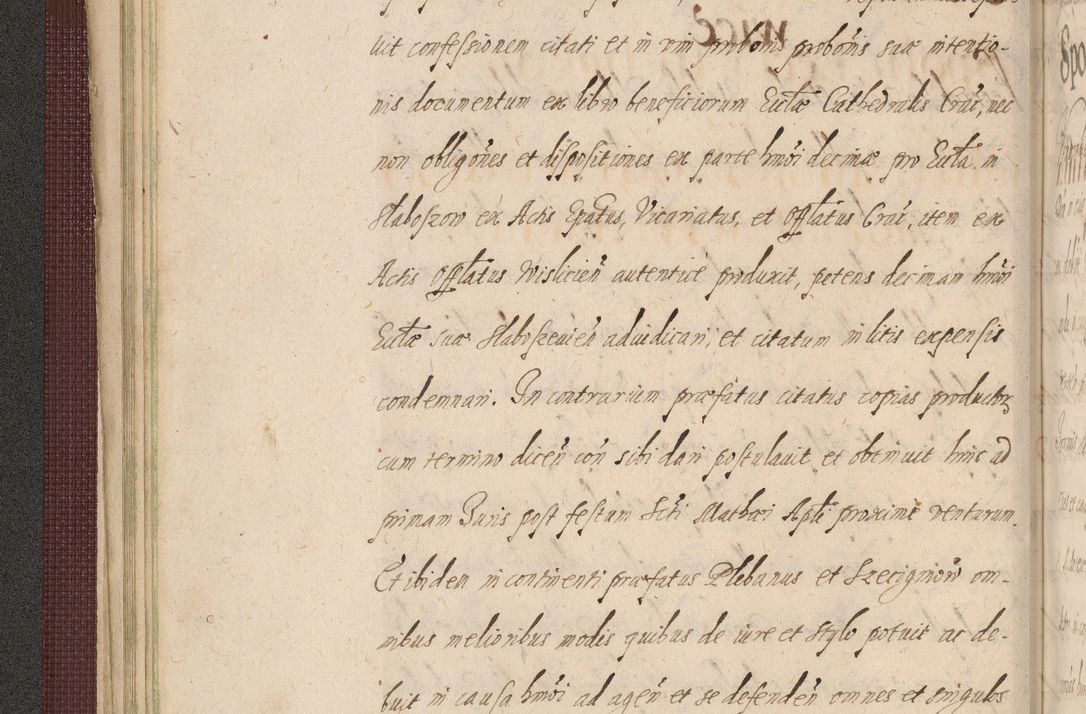 uit confessionem citati et in vim probonis probonis suae intentio-
nis documentum ex libro beneficiorum Ecclae Cathedralis Crac, nec
non obligones et dispositiones ex parte hmoi decimae pro Eccla in
Slaboszow ex Actis Epatus, Vicariatus, et Offlatus Crac, item ex
Actis Offlatus Wislicien autentice produxit, petens decimam hmoi
Ecclae suae Slaboszevien adiudicari, et citatum in litis expensis
condemnari. In contrarium praefatus citatus copias productor
cum termino dicen con sibi dari postulavit et obtinuit hinc ad
primam Juris post festum Scti Mathaei Apli proxime venturum.
Et ibidem in continenti praefatus Plebanus et Szreciginow om-
nibus melioribus modis quibus de iure et stylo potuit ac de-
buit in causa hmoi ad agen et se defenden omnes et singulos